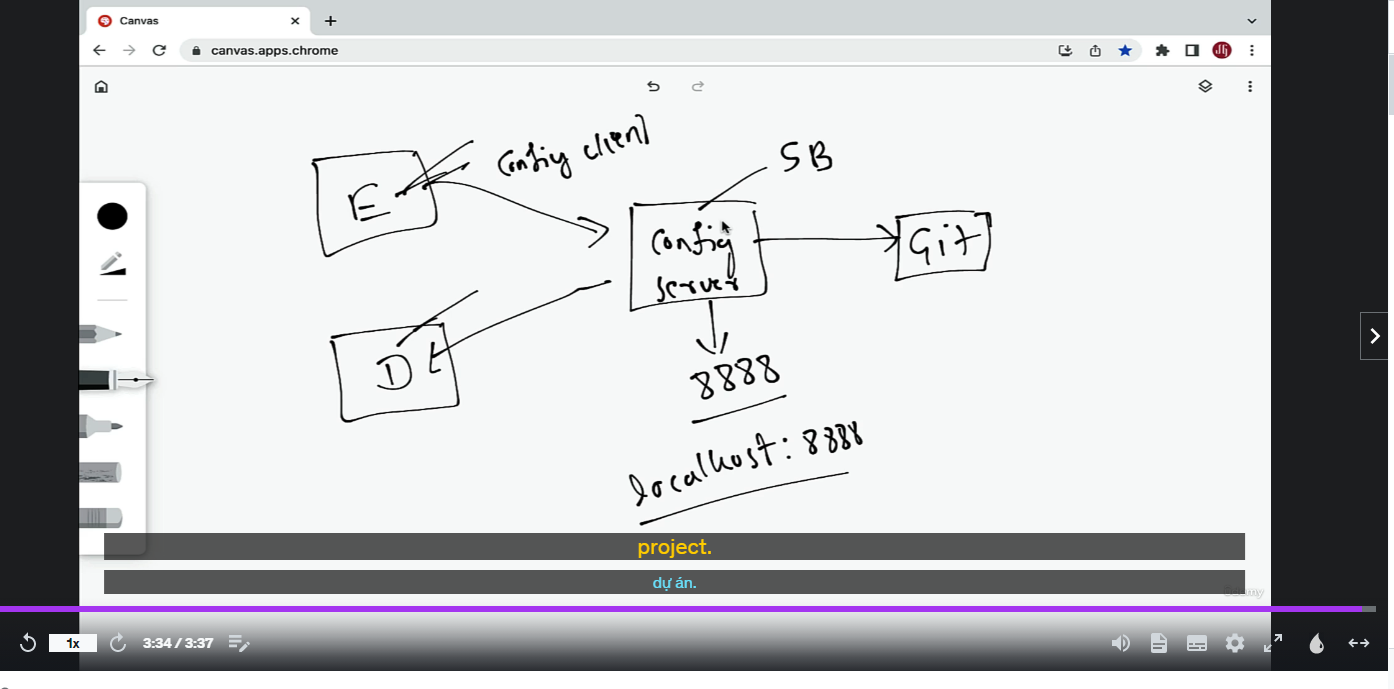 Canvas
canvas.apps.chrome
Config client
SB
E
Config
server
Git
D
8888
localhost: 8888
project.
dự án.
1x
3:34 / 3:37